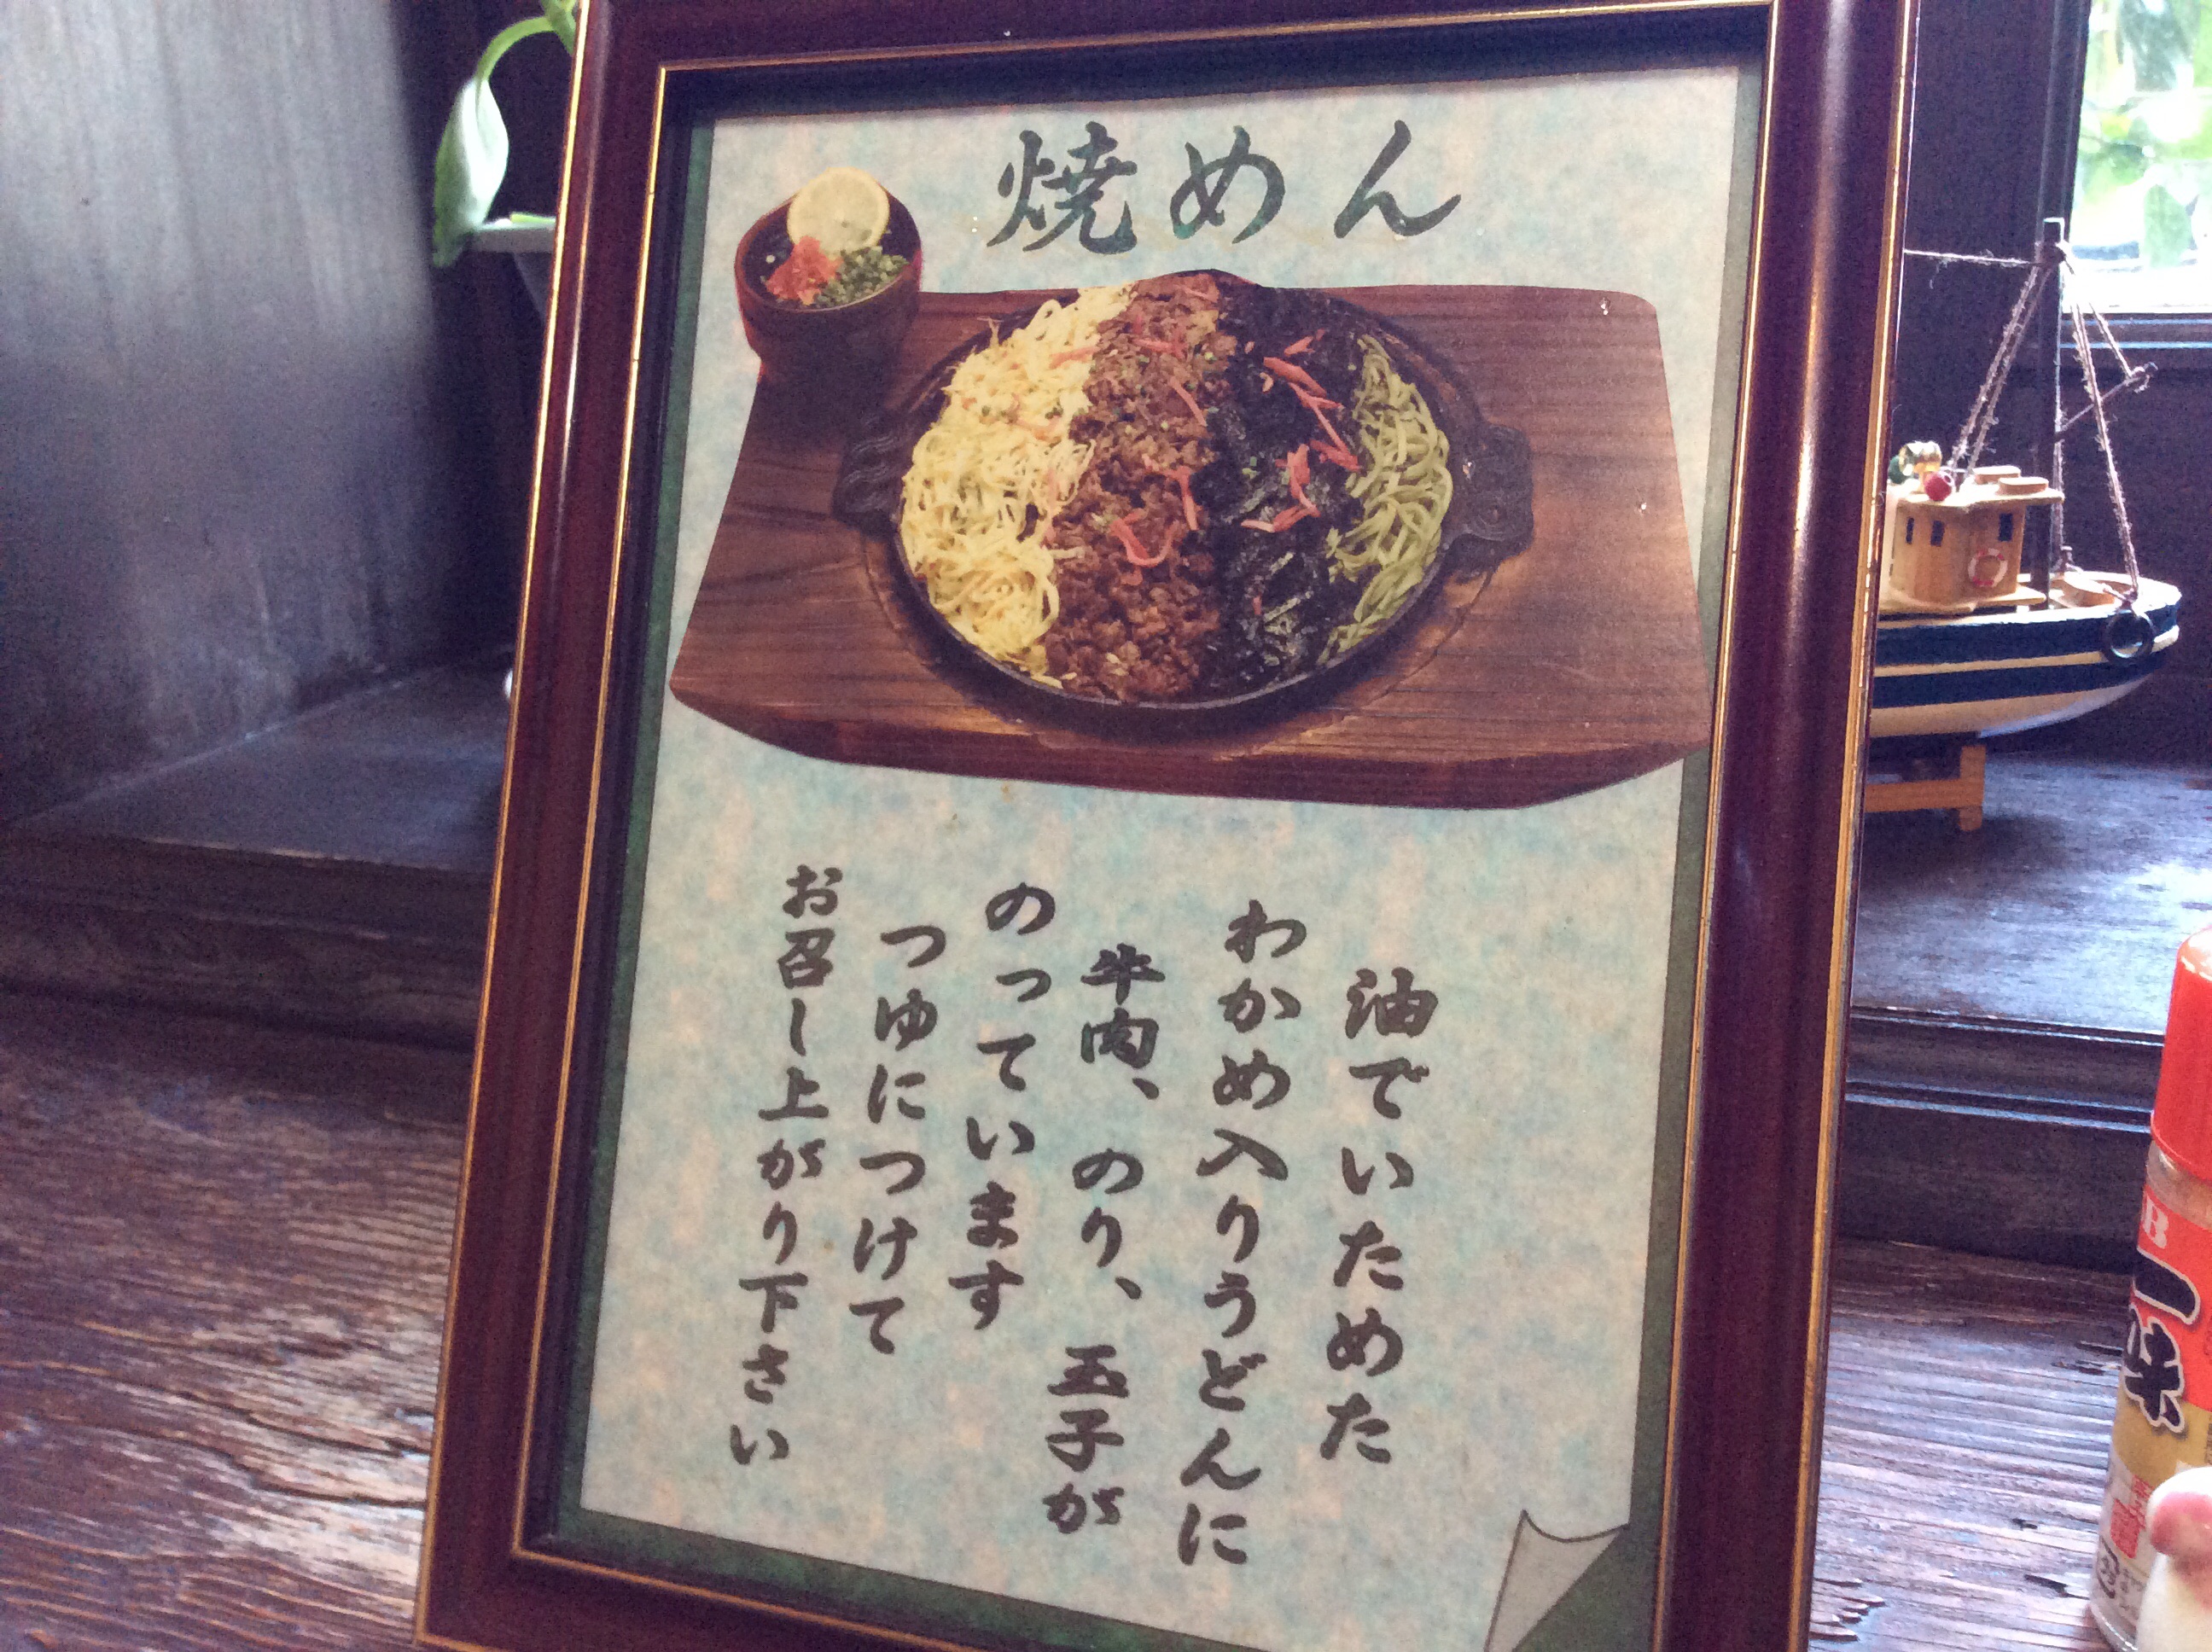 焼めん
油でいためた
わかめ入りうどんに
牛肉、のり、玉子が
のっています
つゆにつけて
お召し上がり下さい
B
一味